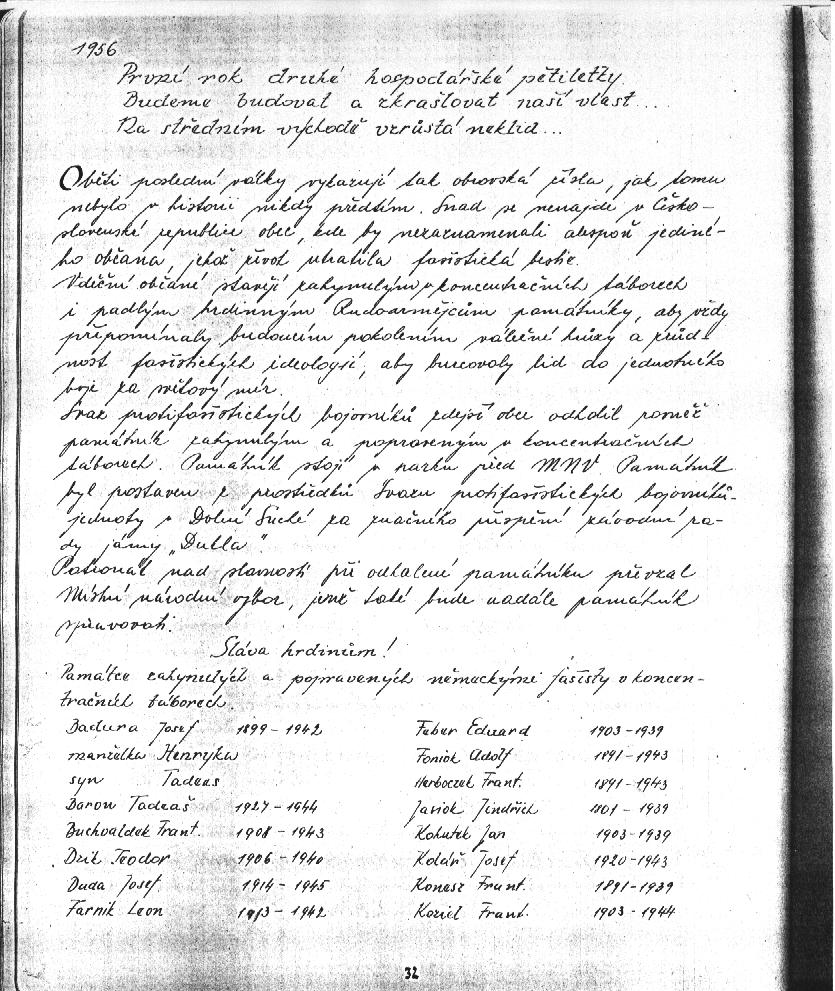 1956
První rok druhé hospodářské pětiletky.
Budeme budovat a zkrašlovat naší vlast...
Na středním východě vzrůstá neklid...
Oběti poslední války vykazují tak obrovská čísla, jak tomu
nebylo v historii nikdy předtím. Snad se nenajde v Česko-
slovenské republice obec, kde by nezaznamenali alespoň jediné-
ho občana, jehož život uhatila fašistická bestie.
Vděční občané stavějí zahynulým v koncentračních táborech
i padlým hrdinným Rudoarmějcům památníky, aby vždy
připomínaly budoucím pokolením válečné hrůzy a zrůd-
nost fašistických ideologií, aby burcovaly lid do jednotného
boje za světový mír.
Svaz protifašistických bojovníků zdejší obce odhalil rovněž
památník zahynulým a popraveným v koncentračních
táborech. Památník stojí v parku před MNV. Památník
byl postaven z prostředků Svazu protifašistických bojovníků-
jednoty v Dolní Suché za značného přispění závodní ra-
dy jámy „Dukla".
Patronát nad slavností při odhalení památníku převzal
Místní národní výbor, jenž také bude nadále památník
spravovati.
Sláva hrdinům!
Památce zahynulých a popravených německými fašisty v koncen-
tračních táborech.
Badura Josef 1899-1942 Faber Eduard 1903-1939
manželka Henryka Foniok Adolf 1891-1943
syn Tadeas Herboczek Frant. 1891-1943
Baron Tadeaš 1927-1944 Javiok Jindřich 1801-1939
Buchvaldek Frant. 1908-1943 Kohutek Jan 1903-1939
Dzik Teodor 1906-1940 Kolář Josef 1920-1943
Duda Josef 1914-1945 Konesz Frant. 1891-1939
Farnik Leon 1913-1942 Koziel Frant. 1903-1944
32